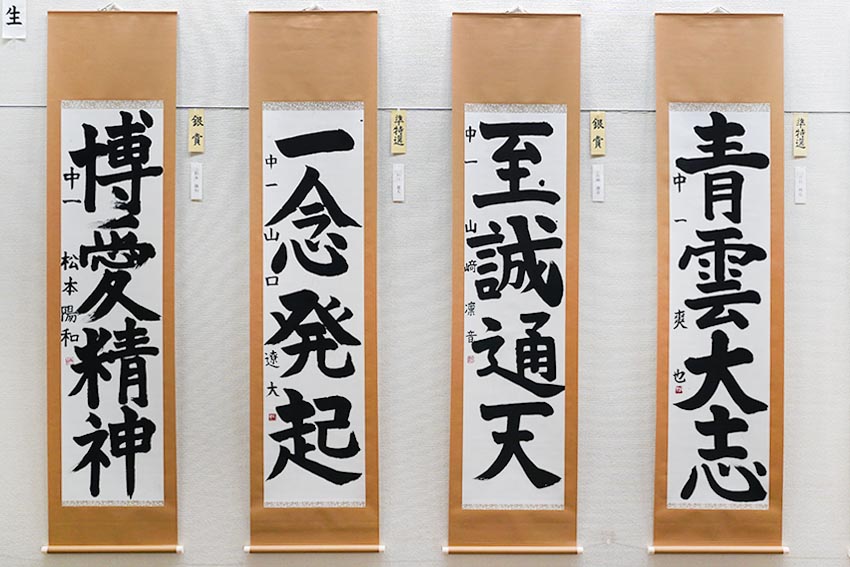 生
博愛精神
中一 松本陽和
銀賞
一念発起
中一 山口遼大
準特選
至誠通天
中一 山﨑凛音
銀賞
青雲大志
中一 爽也
準特選